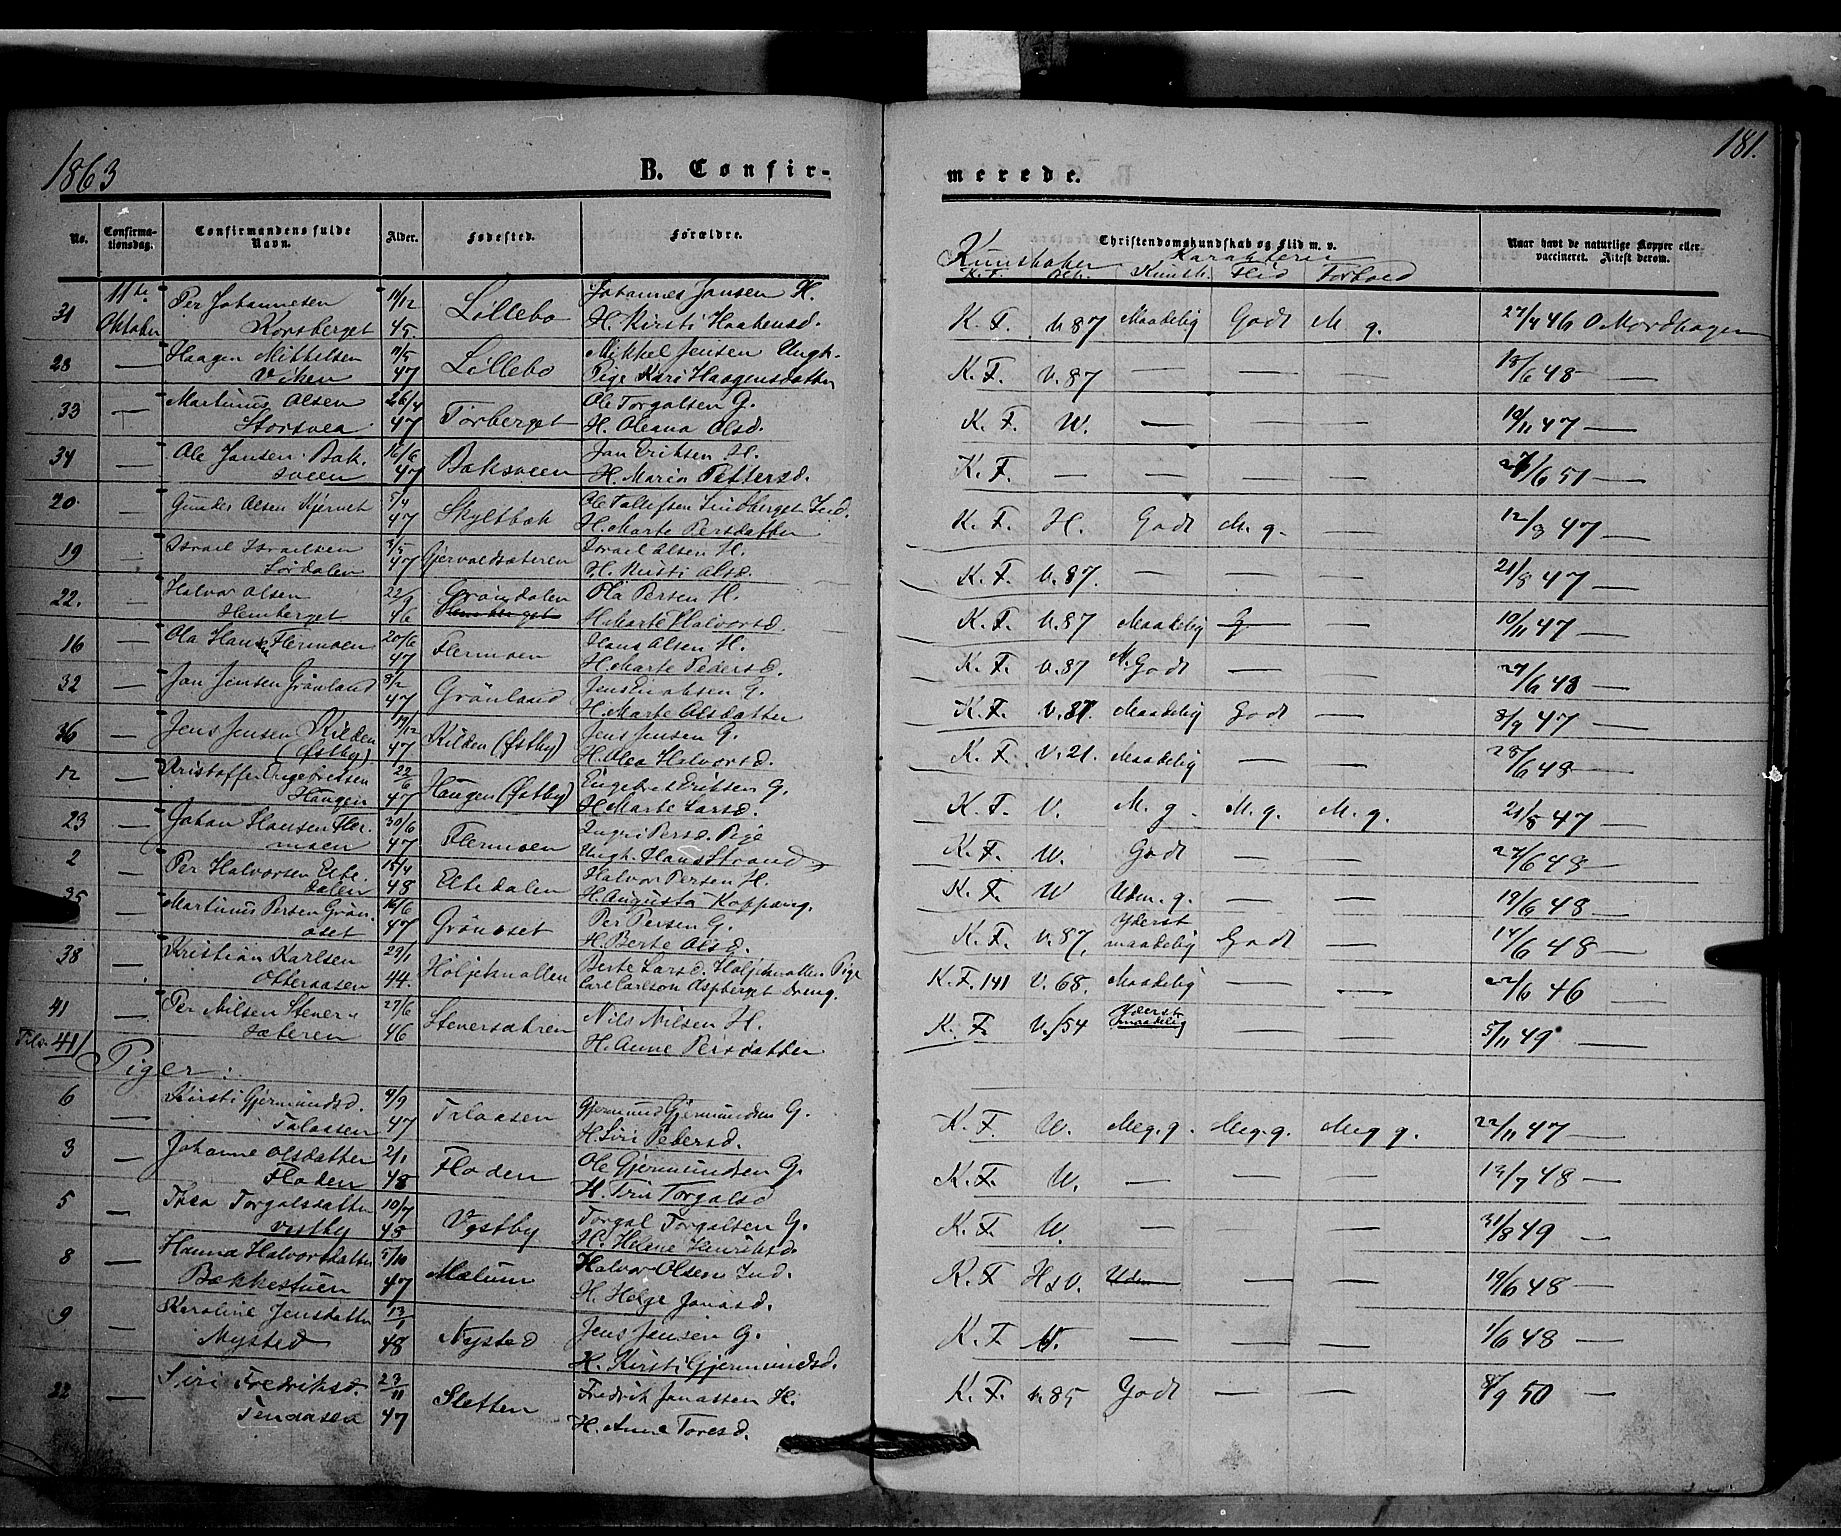 1863
B. Confir-
merede.
181.
No.
Confirma-
tionsdag.
Confirmandens fulde
Navn.
Alder.
Fødested.
Forældre.
Christendomskundskab og Flid m. v.
Kundskaber Karakterer
K.F. Kundsk. Flid Forhold
Naar havt de naturlige Kopper eller
vaccineret. Attest derom.
31 11te Per Johannesen 11/12 Lillebo Johannes Jansen H.
Oktober Korsberget 45. H. Kirsti Haakensd.
K. F. v.87. Maadelig Godt M. g. 27/7 46 O Mordhagen
28 — Haagen Mikkelsen 11/5 Lillebo Mikkel Jensen Ungk.
Viken 47 Pige Kari Haagensdatter
K. F. v.87 — — — 18/6 48 —
33 — Martinus Olsen 26/4 Torberget Ole Torgalsen G.
Stortvea 47 H. Oleana Olsd.
K. F. W. — — — 19/11 47 —
34 — Ole Jansen Bak- 16/6 Baksveen Jan Eriksen H.
sveen 47 H. Maria Pettersd.
K. F. — — — — 27/6 51 —
20 — Gunder Olsen Kjernet 5/4 Skyltbæk Ole Tollefsen Lindberget Ind.
47 H. Marte Persdatter
K. F. H. Godt M. g. — 12/9 47 —
19 — Israel Israelsen 3/5 Gjervaldsæteren Israel Olsen H.
Lørdalen 47 H. Kirsti Olsd.
K. F. v.87. — — — 21/8 47 —
22. — Halvor Olsen 22/9 Grøndalen Ola Persen H.
Hemberget 46 Hemberget H. Marte Halvorsd.
K. F. v.87 Maadelig G — 10/11 47 —
16 — Ola Hans. Flermoen 20/6 Flermoen Hans Olsen H.
47 H. Marte Pedersd.
K. F. v.87 M. Godt — — 27/6 48 —
32 — Jan Jensen Grønland 3/12 Grønland Jens Jacobsen G.
47 H. Marte Olsdatter
K. F. v.87. Maadelig Godt — 8/9 47 —
36 — Jens Jensen Kilden 17/12 Kilden (Østby) Jens Jensen G.
(Østby) 47 H. Olea Halvorsd.
K. F. v.21. Maadelig — — 28/6 48 —
12 — Kristoffer Engebretsen 22/6 Haugen (Østby) Engebret Eriksen G.
Haugen 47 H. Marte Larsd.
K. F. V. M. g. M. g. M. g. 21/8 47 —
23 — Johan Hansen Fler- 30/6 Flermoen Ingri Persd. Pige
moen 47 Ungk. Hans Strand
K. F. W. Godt — — 27/6 48 —
2 — Per Halvorsen Elte- 15/4 Eltedalen Halvor Persen H.
dalen 48 H. Augusta Koppang.
K. F. W Udm. g. — — 19/6 48 —
35 — Martinus Persen Grøn- 16/6 Grønoset Per Persen G.
oset 47 H. Berte Olsd.
K. F. v.87, Yderst maadelig Godt — 14/6 48 —
38 — Kristian Karlsen 29/1 Høljeknollen Berte Larsd. Høljeknollen Pige
Otteraasen 44. Carl Carlson Aspberget Dreng.
K. F. 141 V. 68. Maadelig — — 22/6 46 —
41 — Per Nilsen Stener- 27/6 Stenersætren Nils Nilsen H.
sæteren 46 H. Anne Persdatter
K. F. v./54 Yderst maadelig — — 5/11 49 —
Tils. 41/
Piger:
6 — Kirsti Gjermundsd. 4/9 Talaasen Gjermund Gjermundsen G.
Talaasen 47 H. Siri Pedersd.
K. F. W. Meg. g. Meg. g. Meg g. 22/11 47 —
3 — Johanne Olsdatter 2/1 Floden Ole Gjermundsen G.
Floden 48 H. Trii Torgalsd
K. F. W. — — — 13/7 48 —
5 — Thea Torgalsdatter 10/7 Vestby Torgal Torgalsen G.
Vestby 48 H. Helene Henriksd.
K. F. W. — — — 31/8 49 —
8 — Hanna Halvorsdatter 5/10 Mælum Halvor Olsen Ind.
Bækkestuen 47 H. Helge Jonasd.
K. F. H & V. Udm — — 19/6 48 —
9 — Karoline Jensdatter 13/1 Nysted Jens Jensen G.
Nysted 48 H. Kirsti Gjermundsd.
K. F W. — — — 1/6 48 —
22 — Siri Fredriksd. 23/11 Sletten Fredrik Jonassen H.
Tenaasen 47 H. Anne Toresd.
K. F. v.85 Godt — — 8/9 50 —